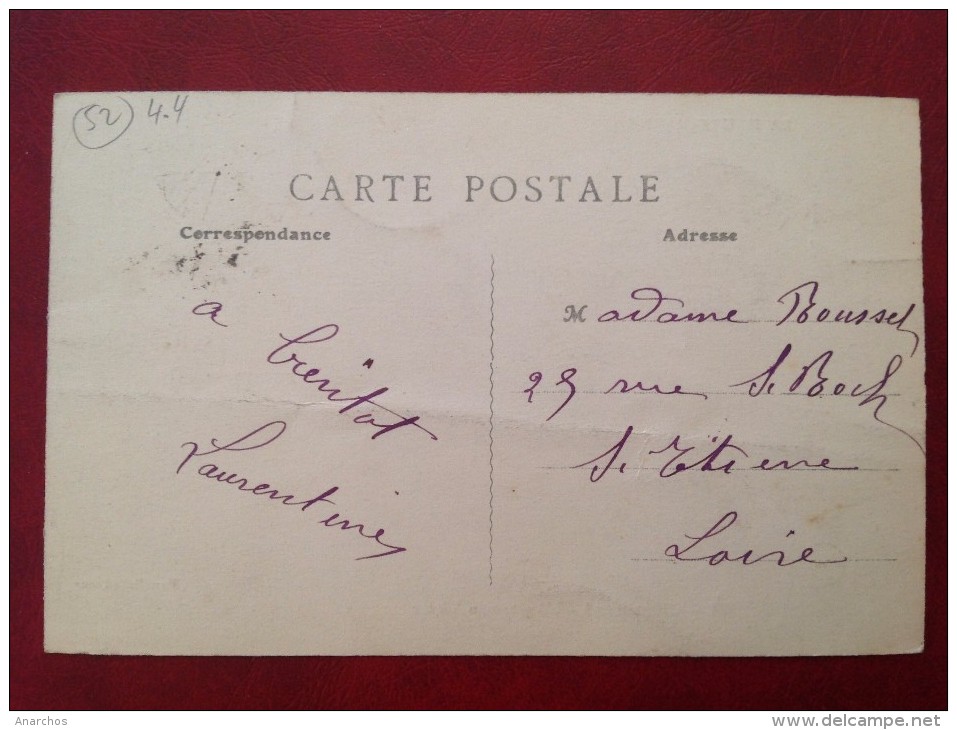 52 4.4
CARTE POSTALE
Correspondance
Adresse
a
bientot
Laurentine
Madame Rousset
25 rue St Roch
St Etienne
Loire
Anarchos
www.delcampe.net